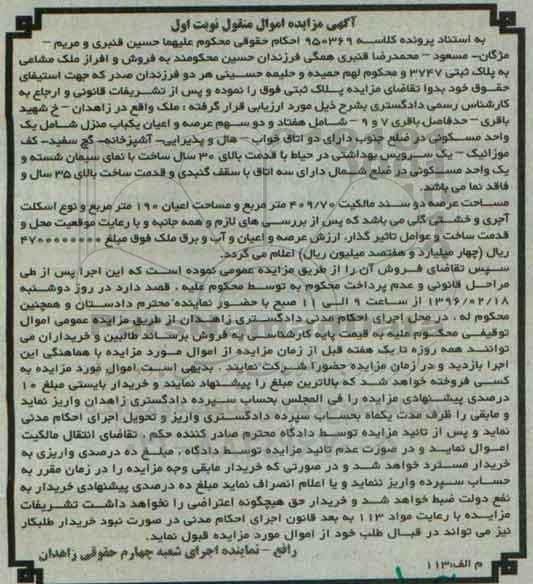 آگهی مزایده اموال منقول نوبت اول
به استناد پرونده کلاسه ۹۵۰۳۶۹ احکام حقوقی محکوم علیهما حسین قنبری و مریم –
مژگان– مسعود – محمدرضا قنبری همگی فرزندان حسین محکومند به فروش و افراز ملک مشاعی
به پلاک ثبتی ۳۷۴۷ و محکوم لهم حمیده و حلیمه حسینی هر دو فرزندان صدر که جهت استیفای
حقوق خود بدوا تقاضای مزایده پلاک ثبتی فوق را نموده و پس از تشریفات قانونی و ارجاع به
کارشناس رسمی دادگستری بشرح ذیل مورد ارزیابی قرار گرفته : ملک واقع در زاهدان – خ شهید
باقری – حدفاصل باقری ۷ و ۹ – شامل هفتاد و دو سهم عرصه و اعیان یکباب منزل شامل یک
واحد مسکونی در ضلع جنوب دارای دو اتاق خواب – هال و پذیرایی– آشپزخانه– گچ سفید– کف
موزائیک – یک سرویس بهداشتی در حیاط با قدمت بالای ۳۰ سال ساخت با نمای سیمان شسته و
یک واحد مسکونی در ضلع شمال دارای سه اتاق با سقف گنبدی و قدمت ساخت بالای ۳۵ سال و
فاقد نما می باشد.
مساحت عرصه دو سند مالکیت ۴۰۹/۷۰ متر مربع و مساحت اعیان ۱۹۰ متر مربع و نوع اسکلت
آجری و خشتی گلی می باشد که پس از بررسی های لازم و همه جانبه و با رعایت موقعیت محل و
قدمت ساخت و عوامل تاثیر گذار، ارزش عرصه و اعیان و آب و برق ملک فوق مبلغ ۴۷۰۰۰۰۰۰۰۰
ریال (چهار میلیارد و هفتصد میلیون ریال) اعلام می گردد.
سپس تقاضای فروش آن را از طریق مزایده عمومی نموده است که این اجرا پس از طی
مراحل قانونی و عدم پرداخت محکوم به توسط محکوم علیه ، قصد دارد در روز دوشنبه
۱۳۹۶/۰۲/۱۸ از ساعت ۹ الی ۱۱ صبح با حضور نماینده محترم دادستان و همچنین
محکوم له ، در محل اجرای احکام مدنی دادگستری زاهدان از طریق مزایده عمومی اموال
توقیفی محکوم علیه به قیمت پایه کارشناسی به فروش برساند طالبین و خریداران می
توانند همه روزه تا یک هفته قبل از زمان مزایده از اموال مورد مزایده با هماهنگی این
اجرا بازدید و در زمان مزایده حضورا شرکت نمایند . بدیهی است اموال مورد مزایده به
کسی فروخته خواهد شد که بالاترین مبلغ را پیشنهاد نمایند و خریدار بایستی مبلغ ۱۰
درصدی پیشنهادی مزایده را فی المجلس بحساب سپرده دادگستری زاهدان واریز نماید
و مابقی را ظرف مدت یکماه بحساب سپرده دادگستری واریز و تحویل اجرای احکام مدنی
نماید و پس از تائید مزایده توسط دادگاه محترم صادر کننده حکم ، تقاضای انتقال مالکیت
اموال نمایند و در صورت عدم تائید مزایده توسط دادگاه ، مبلغ ده درصدی واریزی به
خریدار مسترد خواهد شد و در صورتی که خریدار مابقی وجه مزایده را در زمان مقرر به
حساب سپرده واریز ننماید و یا اعلام انصراف نماید مبلغ ده درصدی پیشنهادی خریدار به
نفع دولت ضبط خواهد شد و خریدار حق هیچگونه اعتراضی را نخواهد داشت تشریفات
مزایده با رعایت مواد ۱۱۳ به بعد قانون اجرای احکام مدنی در صورت نبود خریدار طلبکار
نیز می تواند در قبال طلب خود از اموال مورد مزایده قبول نماید.
رافع – نماینده اجرای شعبه چهارم حقوقی زاهدان
م الف:۱۱۳